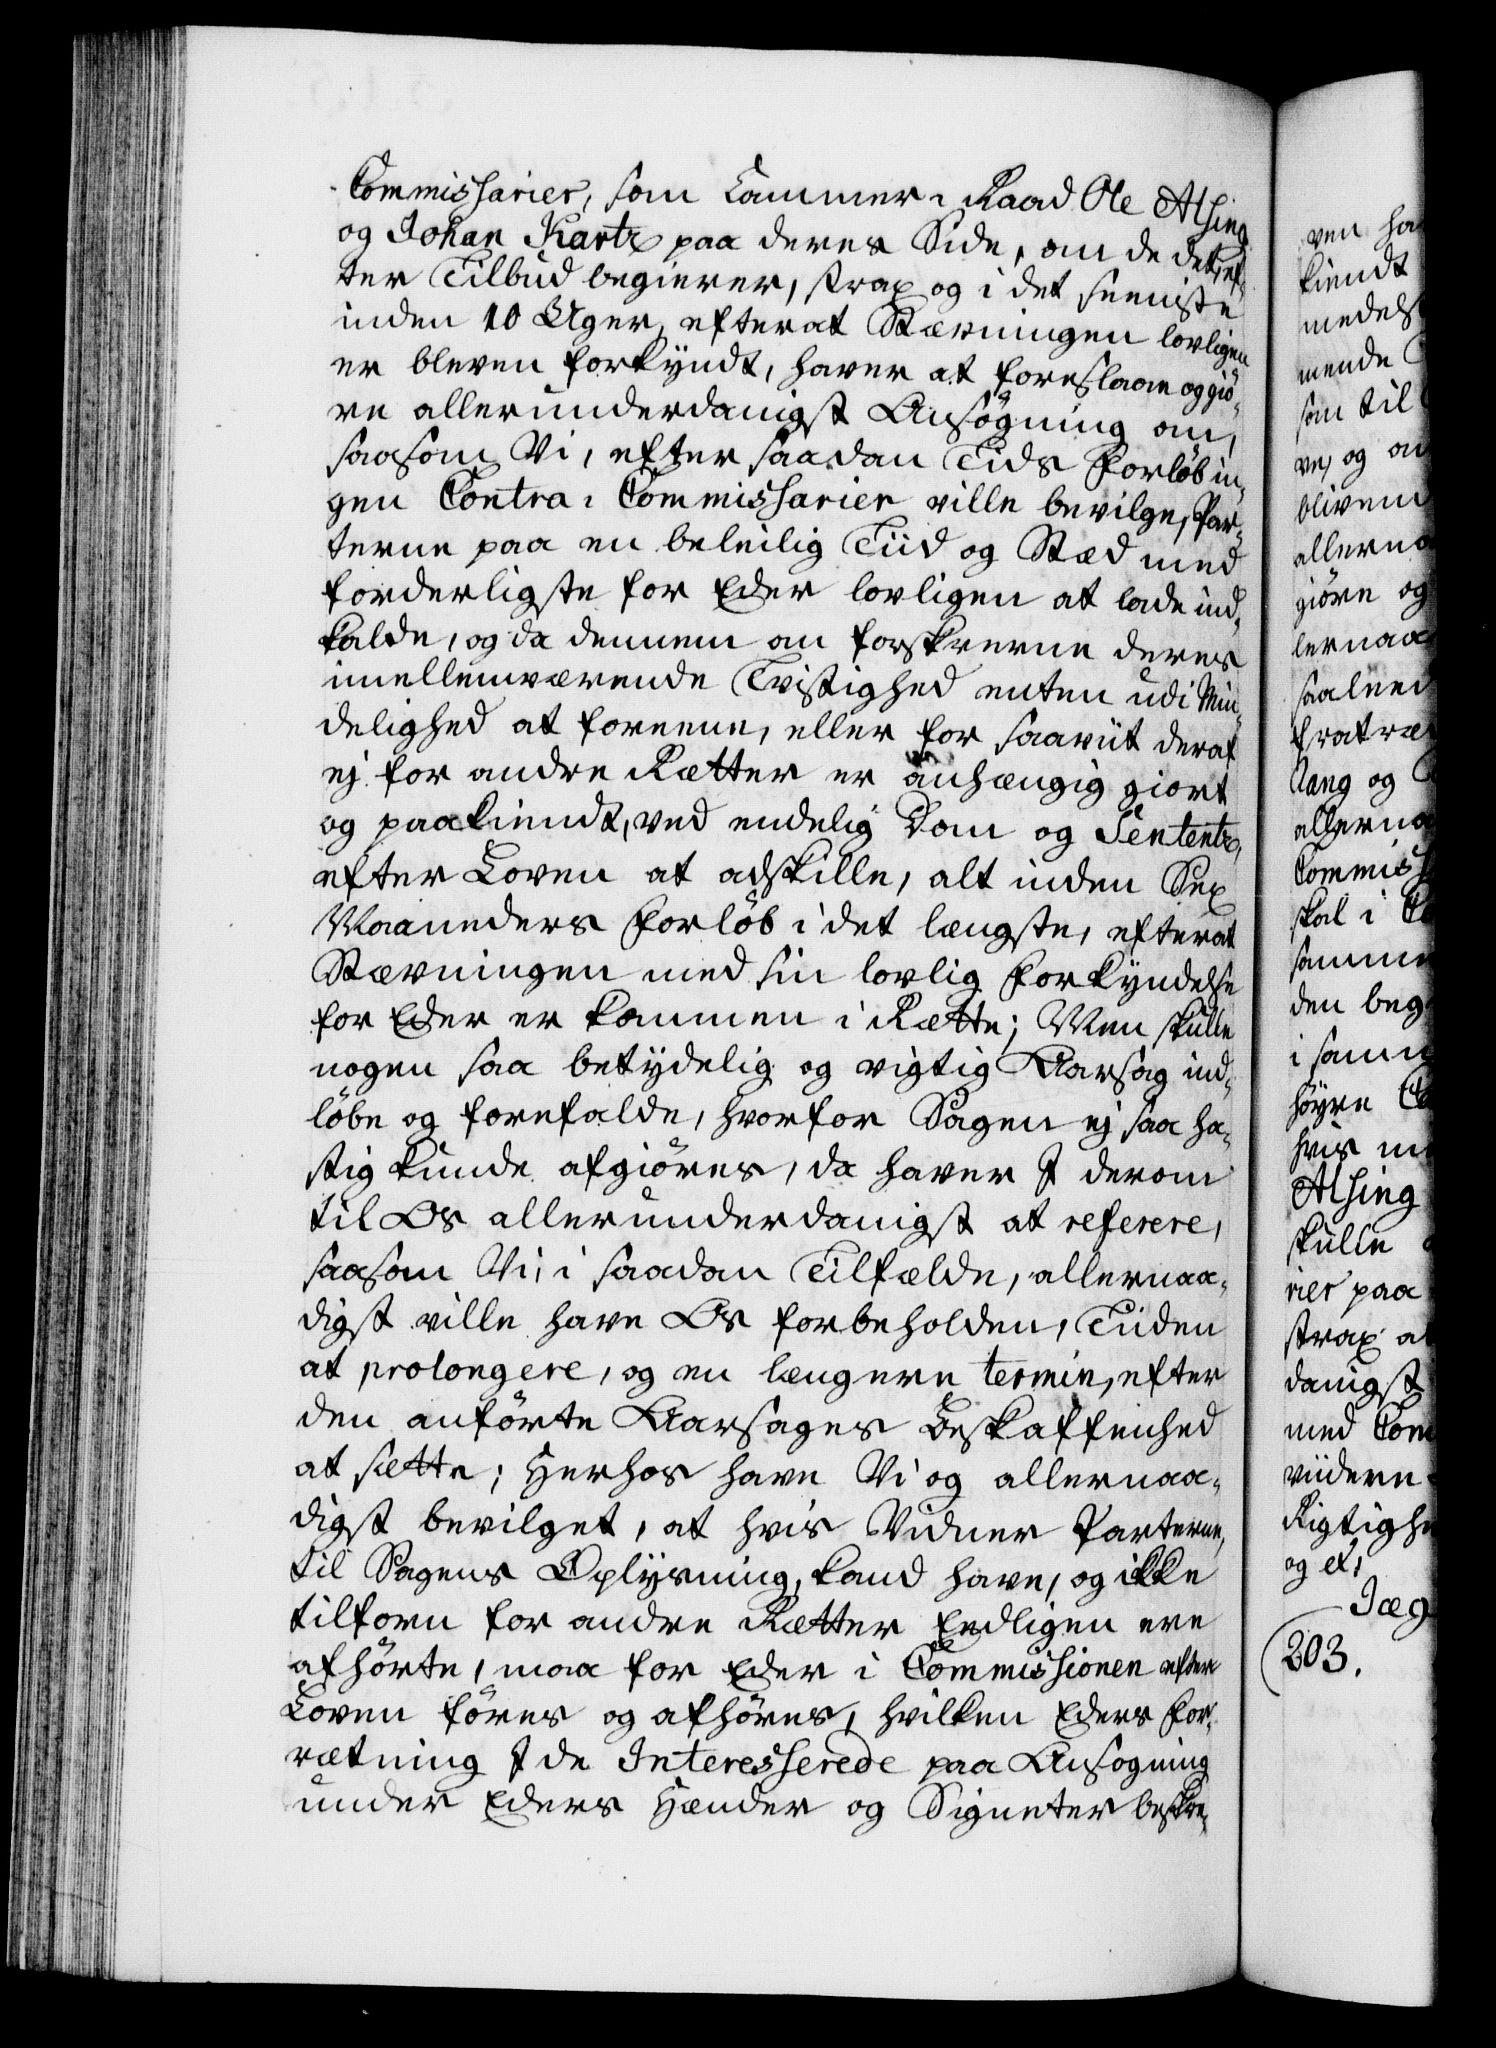 Commissarier, som Cammer-Raad Ole Alsing
og Johan Kartz paa deres Side, om de det, ef-
ter Tilbud begierer, strax og i det seeniste
inden 10 Uger, efterat Stævningen lovligen
er bleven forkyndt, haver at foreslaae og giö-
re allerunderdanigst Ansögning om,
saasom Vi, efter saadan Tids Forlöb in-
gen Contra-Commissarier ville bevilge, Par-
terne paa en beleilig Tiid og Stæd med
forderligste for Eder lovligen at lade ind-
kalde, og da dennem om forskrevne deres
imellemværende Tvistighed enten udi Min-
delighed at foreene, eller for saaviit deraf
ej for andre Rætter er anhængig giort
og paakiendt, ved endelig Dom og Sententz,
efter Loven at adskille, alt inden Sex
Maaneders Forlöb i det længste, efterat
Stævningen med sin lovlig Forkyndelse
for Eder er kommen i Rætte; Men skulle
nogen saa betydelig og vigtig Aarsag ind-
löbe og forefalde, hvorfor Sagen ej saa ha-
stig kunde afgiöres, da haver I derom
til Os allerunderdanigst at referere,
saasom Vi, i saadan Tilfælde, allernaa-
digst ville have Os forbeholden, Tiiden
at prolongere, og en længere termin, efter
den anförte Aarsages Beskaffenhed
at sætte; Herhos have Vi og allernaa-
digst bevilget, at hvis Vidner Parterne,
til Sagens Oplysning, kand have, og ikke
tilforn for andre Rætter Eedligen ere
afhörte, maa for Eder i Commissionen efter
Loven föres og afhöres, hvilken Eders For-
rætning I de Interesserede paa Ansögning
under Eders Hænder og Signeter beskre-
ven ha
kiendt
medels
mende
som til
ve, og om
bliven
allerna
giöre og
lernaa
saaleed
fratræ
Rang og
allerna
Commiss
skal i
samme
den beg
i samm
höyre
hvis
Alsing
skulle
rier paa
strax at
danigst
med Com
viidere
Rigtighe
og et,
Jæg
203.